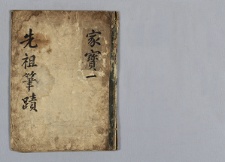 家寶一
先祖筆蹟